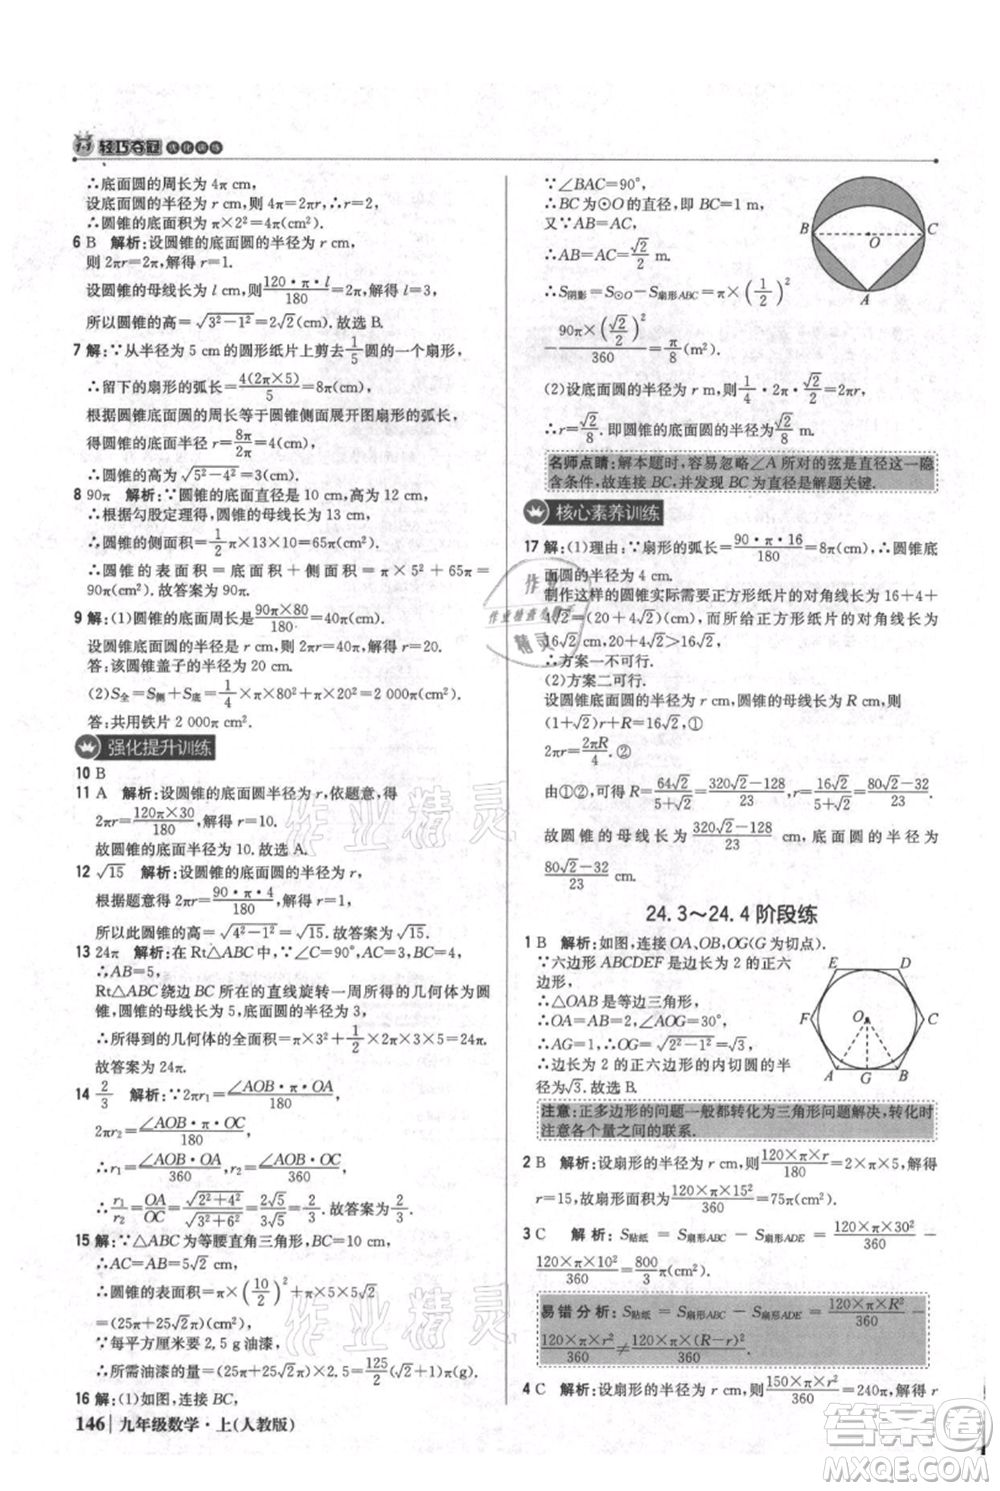 1+1 轻巧夺冠 优化训练
∴底面圆的周长为 4π cm,
设底面圆的半径为 r cm,4π=2πr,∴r=2.
∴圆锥的底面积为 π×2²=4π(cm²).
6 B 解析:设圆锥的底面圆的半径为 r cm,
则 2πr=2π,解得 r=1.
设圆锥的母线长为 l cm,则 2π=120·π·l/180,解得 l=3,
所以圆锥的高=√(3²−1²)=2√2(cm).故选 B.
7 解:∵从半径为 5 cm 的圆形纸片上剪去 1/5 圆的一个扇形,
∴留下的扇形的弧长=4(2π×5)/5=8π(cm),
根据圆锥的底面圆的周长等于圆锥侧面展开图扇形的弧长,
得圆锥的底面半径 r=8π/2π=4(cm),
∴圆锥的高为=√(5²−4²)=3(cm).
8 90π 解析:∵圆锥的底面直径是 10 cm,高为 12 cm,
∴根据勾股定理得,圆锥的母线长为 13 cm,
∴圆锥的侧面积=1/2×π×10×13=65π(cm²),
∴圆锥的表面积=底面积+侧面积=25π+65π=
90π(cm²).故答案为 90π.
9 解:(1)圆锥的底面周长=90π×80/180=40π(cm).
由题意可得 2πr=40π,解得 r=20.
答:该圆锥盖子的半径为 20 cm.
(2)S全=S侧+S底=1/4×π×80²+π×20²=2 000π(cm²).
答:共用铁片 2 000π cm².
强化提升训练
10 B
11 A 解析:设圆锥的底面圆半径为 r,依题意,得
2πr=120π×30/180,解得 r=10.
故圆锥的底面半径为 10.故选 A.
12 √15 解析:设圆锥的底面圆的半径为 r,
根据题意得 2πr=90·π·4/180,解得 r=1,
所以此圆锥的高=√(4²−1²)=√15.故答案为 √15.
13 24π 解析:在 Rt△ABC 中,∠C=90°,AC=3,BC=4,
∴AB=5,
Rt△ABC 绕边 BC 所在的直线旋转一周所得的几何体为圆
锥,圆锥的母线长为 5,底面圆的半径为 3,
∴所得到的几何体的全面积=π×3²+1/2×2π×3×5=24π.
故答案为 24π.
14 2/3 解析:∵2πr₁=∠AOB·π·OA/180,
2πr₂=∠AOB·π·OC/180,
∴r₁=∠AOB·OA/360,r₂=∠AOB·OC/360,
∴r₁/r₂=OA/OC=√(2²+4²)/√(3²+6²)=2√5/3√5=2/3.故答案为 2/3.
15 解:∵△ABC 为等腰直角三角形,BC=10 cm,
∴AC=AB=5√2 cm,
∴圆锥的表面积=π×(10/2)²+π×5×5√2
=(25π+25√2π)(cm²).
∵每平方厘米用 2.5 g 油漆,
∴所需油漆的量=(25π+25√2π)×2.5=125/2(√2π+π)(g).
16 解:(1)如图,连接 BC,
146 九年级数学·上(人教版)
∵∠BAC=90°,
∴BC 为⊙O 的直径,即 BC=1 m,
又∵AB=AC,
∴AB=AC=√2/2 m.
∴S阴影=S⊙O−S扇形ABC=π·(1/2)²−
90π×(√2/2)²/360=π/8(m²).
(2)设底面圆的半径为 r m,则 1/4·2π·√2/2=2πr,
∴r=√2/8.即圆锥的底面圆的半径长为 √2/8 m.
B O C A
名师点睛:解本题时,容易忽略∠A 所对的弦是直径这一隐
含条件,故连接 BC,再证 BC 为直径是解题关键.
核心素养训练
17 解:(1)理由:∵扇形的弧长=90·π·16/180=8π(cm),圆锥底
面圆的半径为 4 cm.
制作这样的圆锥实际需要正方形纸片的对角线长为 16+4+
4√2=(20+4√2)(cm),而所给正方形纸片的对角线长为
16√2 cm,20+4√2>16√2,
∴方案一不可行.
(2)方案二可行.
设圆锥底面圆的半径为 r cm,圆锥的母线长为 R cm,则
(1+√2)r+R=16√2,①
2πr=2πR/4. ②
由①②,可得 R=64√2/(5+√2)=(320√2−128)/23,r=16√2/(5+√2)=(80√2−32)/23.
故圆锥的母线长为 (320√2−128)/23 cm,底面圆的半径为
(80√2−32)/23 cm.
24.3～24.4 阶段练
1 B 解析:如图,连接 OA,OB,OG(G 为切点).
∵六边形 ABCDEF 是边长为 2 的正六
边形,
∴△OAB 是等边三角形,
∴OA=AB=2,∠AOG=30°,
∴OG=√(2²−1²)=√3,
∴边长为 2 的正六边形的内切圆的半
径为√3.故选 B.
E D F O C A G B
注意:正多边形的问题一般都转化为三角形问题解决,转化时
注意各个量之间的联系.
2 B 解析:设扇形的半径为 r cm,则 120×π×r/180=2×5×π,解得
r=15,故扇形面积为 120×π×15²/360=75π(cm²).
3 C 解析:S贴纸=S扇形ABC−S扇形ADE=120×π×30²/360−
120×π×10²/360=800/3π(cm²).
易错分析:S贴纸=S扇形ABC−S扇形ADE=120×π×R²/360−
120×π×r²/360≠120×π×(R−r)²/360.
4 C 解析:设扇形的半径为 R cm,由题意得 150×π×R²/360=240π,解得
作业精灵
作业检查小帮手
答案圈
MXQE.COM